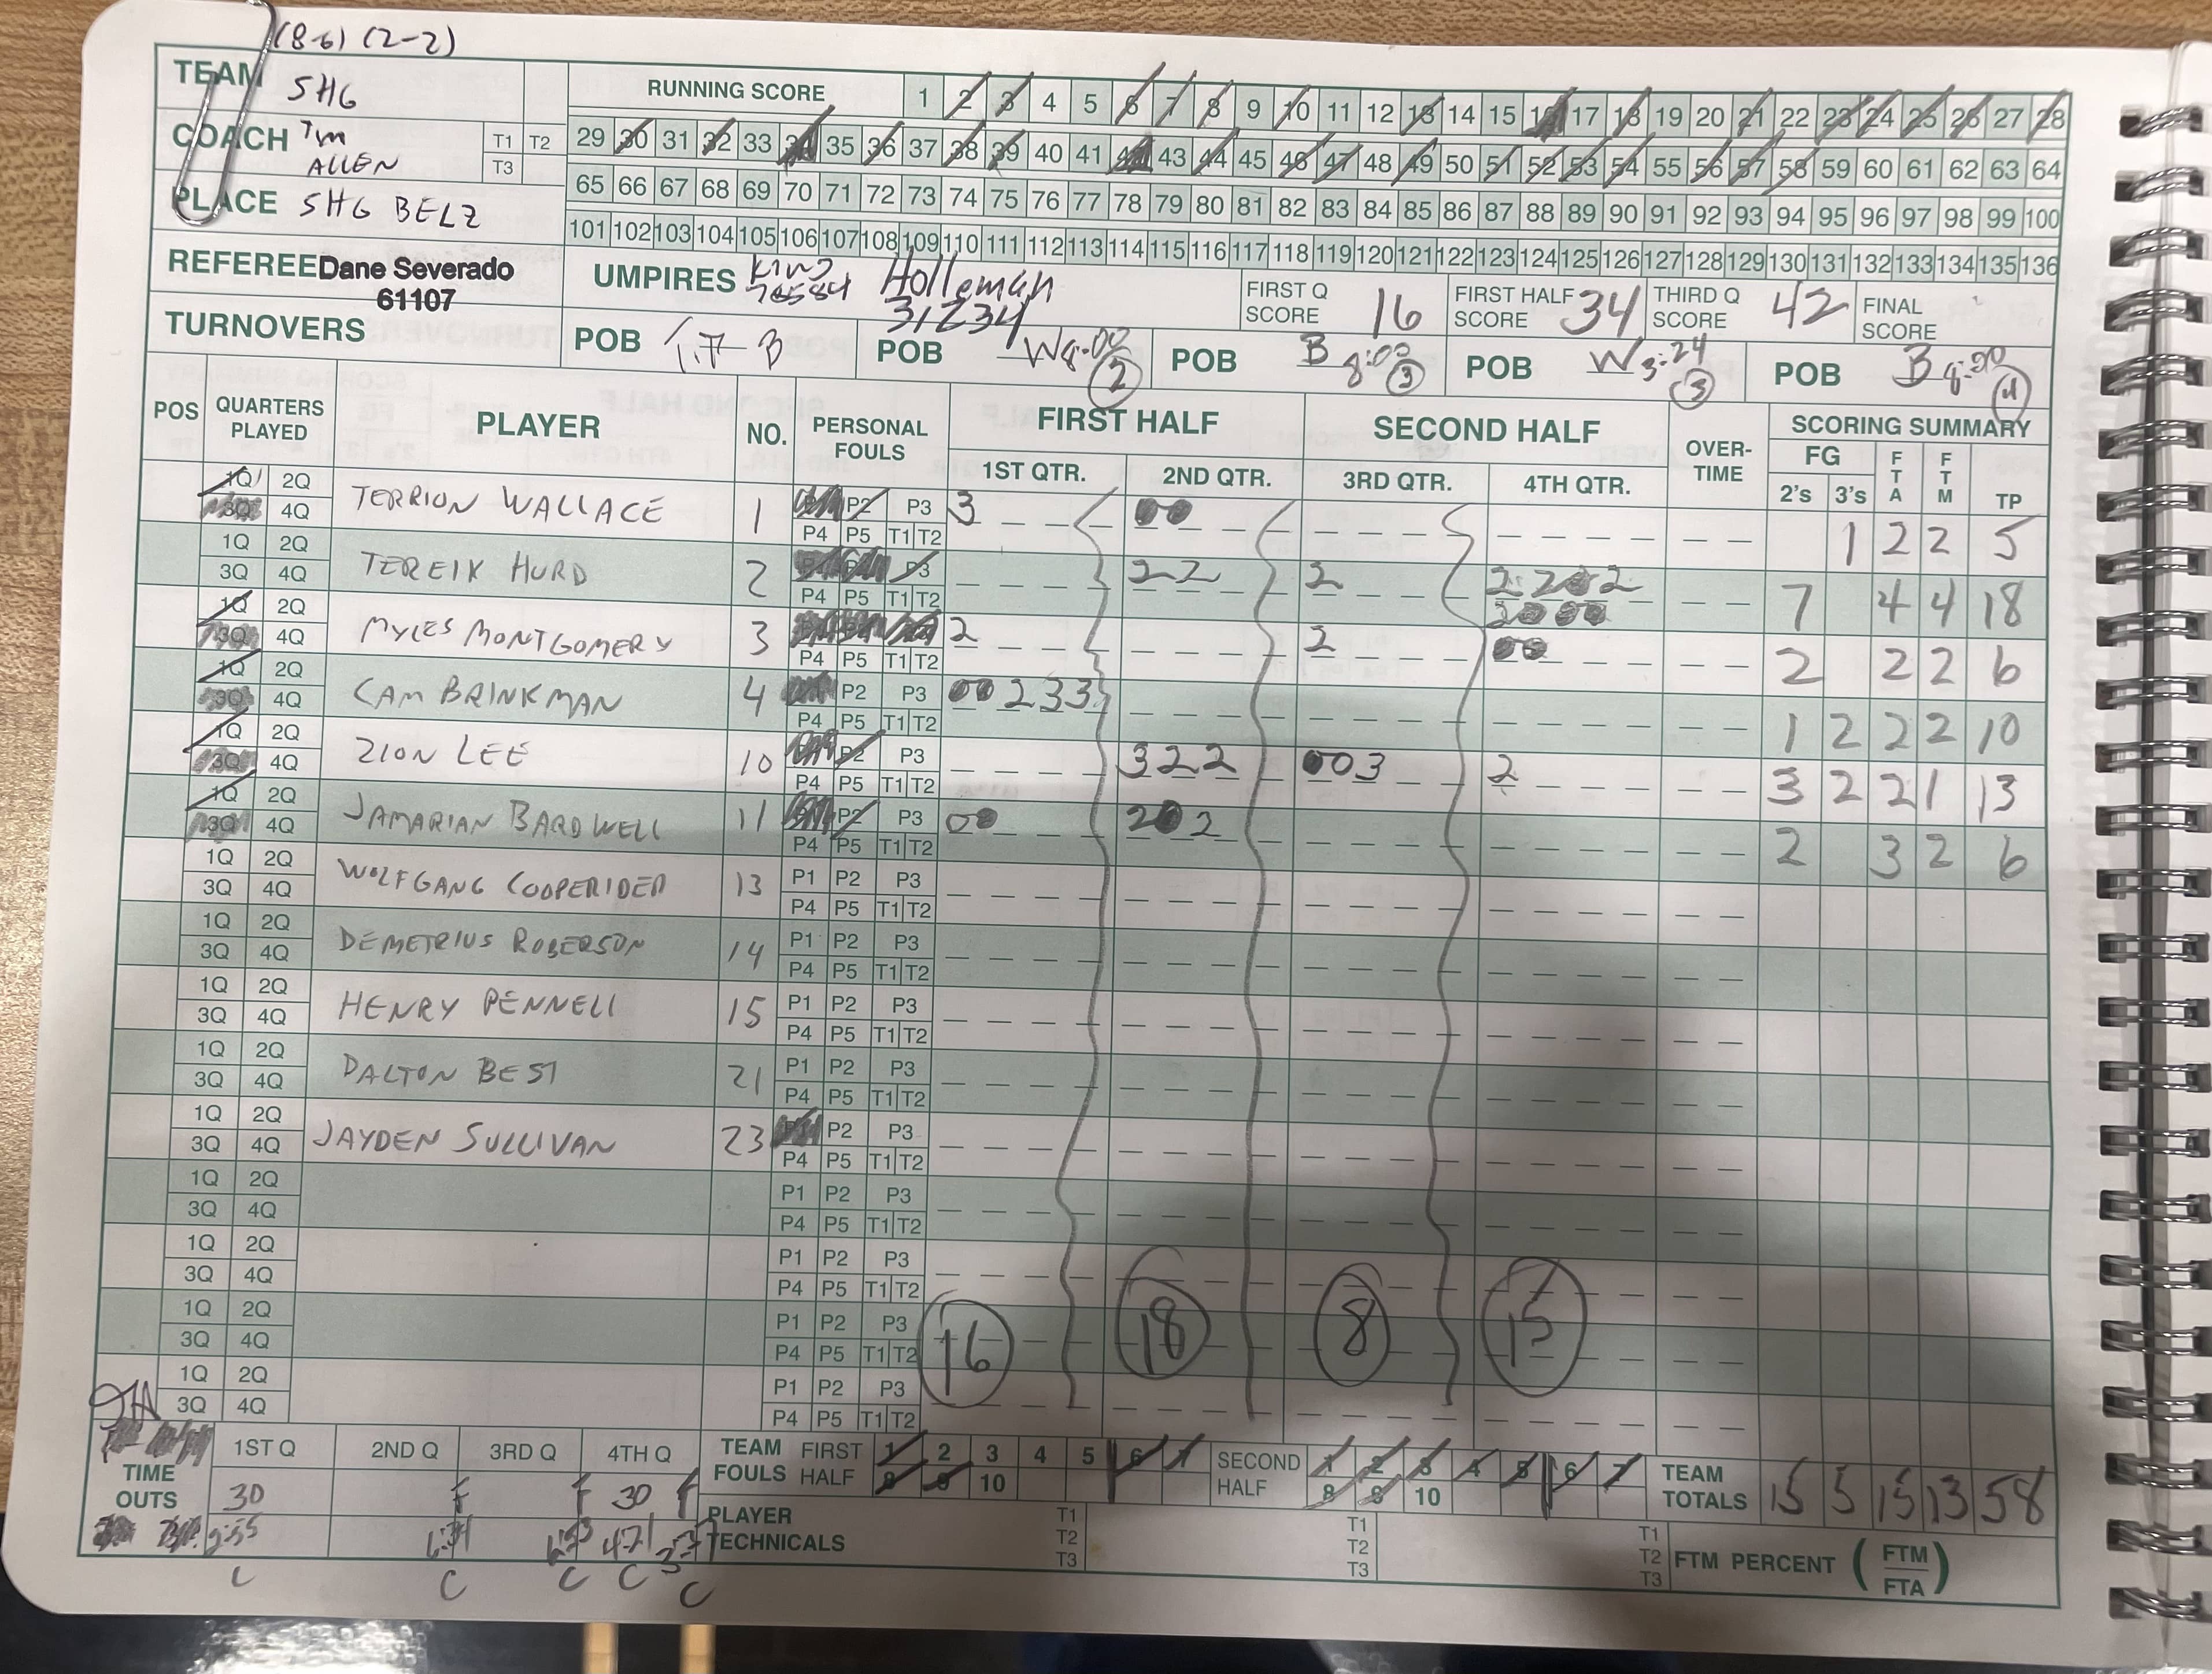 (8-6) (2-2)
TEAM SHG
COACH Tim ALLEN T1 T2 T3
PLACE SHG BELZ
REFEREE Dane Severado 61107
RUNNING SCORE 1 2 3 4 5 6 7 8 9 10 11 12 13 14 15 16 17 18 19 20 21 22 23 24 25 26 27 28
29 30 31 32 33 34 35 36 37 38 39 40 41 42 43 44 45 46 47 48 49 50 51 52 53 54 55 56 57 58 59 60 61 62 63 64
65 66 67 68 69 70 71 72 73 74 75 76 77 78 79 80 81 82 83 84 85 86 87 88 89 90 91 92 93 94 95 96 97 98 99 100
101 102 103 104 105 106 107 108 109 110 111 112 113 114 115 116 117 118 119 120 121 122 123 124 125 126 127 128 129 130 131 132 133 134 135 136
UMPIRES King 78584 Holleman 31234
FIRST Q SCORE 16 FIRST HALF SCORE 34 THIRD Q SCORE 42 FINAL SCORE
TURNOVERS POB B POB W 8:00 2 POB B 8:00 3 POB W 3:24 3 POB B 8:00 4
POS QUARTERS PLAYED PLAYER NO. PERSONAL FOULS FIRST HALF SECOND HALF OVER-TIME SCORING SUMMARY
1ST QTR. 2ND QTR. 3RD QTR. 4TH QTR. FG 2's 3's FTA FTM TP
1Q 2Q 3Q 4Q TERRION WALLACE 1 P2 P3 P4 P5 T1 T2 3 1 2 2 5
1Q 2Q 3Q 4Q TEREIK HURD 2 P3 P4 P5 T1 T2 2 2 2 7 4 4 18
1Q 2Q 3Q 4Q MYLES MONTGOMERY 3 P4 P5 T1 T2 2 2 2 2 2 6
1Q 2Q 3Q 4Q CAM BRINKMAN 4 P2 P3 P4 P5 T1 T2 2 3 3 1 2 2 2 10
1Q 2Q 3Q 4Q ZION LEE 10 P2 P3 P4 P5 T1 T2 3 2 2 3 2 3 2 2 1 13
1Q 2Q 3Q 4Q JAMARIAN BARDWELL 11 P2 P3 P4 P5 T1 T2 2 2 2 3 2 6
1Q 2Q 3Q 4Q WOLFGANG COOPERIDER 13 P1 P2 P3 P4 P5 T1 T2
1Q 2Q 3Q 4Q DEMETRIUS ROBERSON 14 P1 P2 P3 P4 P5 T1 T2
1Q 2Q 3Q 4Q HENRY PENNELL 15 P1 P2 P3 P4 P5 T1 T2
1Q 2Q 3Q 4Q DALTON BEST 21 P1 P2 P3 P4 P5 T1 T2
1Q 2Q 3Q 4Q JAYDEN SULLIVAN 23 P2 P3 P4 P5 T1 T2
1Q 2Q 3Q 4Q P1 P2 P3 P4 P5 T1 T2
1Q 2Q 3Q 4Q P1 P2 P3 P4 P5 T1 T2
1Q 2Q 3Q 4Q P1 P2 P3 P4 P5 T1 T2
1Q 2Q 3Q 4Q P1 P2 P3 P4 P5 T1 T2
16 18 8 15
TIME OUTS 1ST Q 2ND Q 3RD Q 4TH Q
30 F F 30 F
C C C C C
TEAM FOULS FIRST HALF 1 2 3 4 5 6 7 8 9 10 SECOND HALF 1 2 3 4 5 6 7 8 9 10
TEAM TOTALS 15 5 15 13 58
PLAYER TECHNICALS T1 T2 T3 T1 T2 T3 T1 T2 T3
FTM PERCENT (FTM FTA)